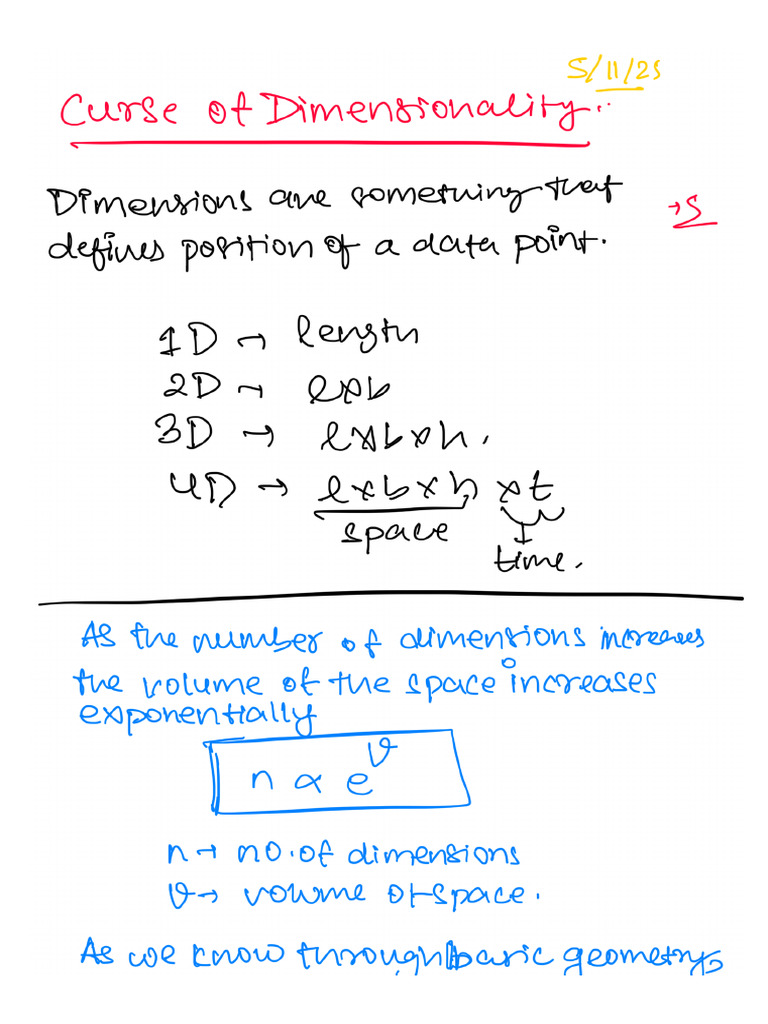 5/11/25
Curse of Dimensionality..
Dimensions are something that
→ S
defines position of a data point.
1D → length
2D → lxb
3D → lxbxh.
4D → lxbxh xt
space
time.
As the number of dimensions increases
the volume of the space increases
exponentially
n ∝ e^v
n → no. of dimensions
v → volume of space.
As we know through basic geometry,